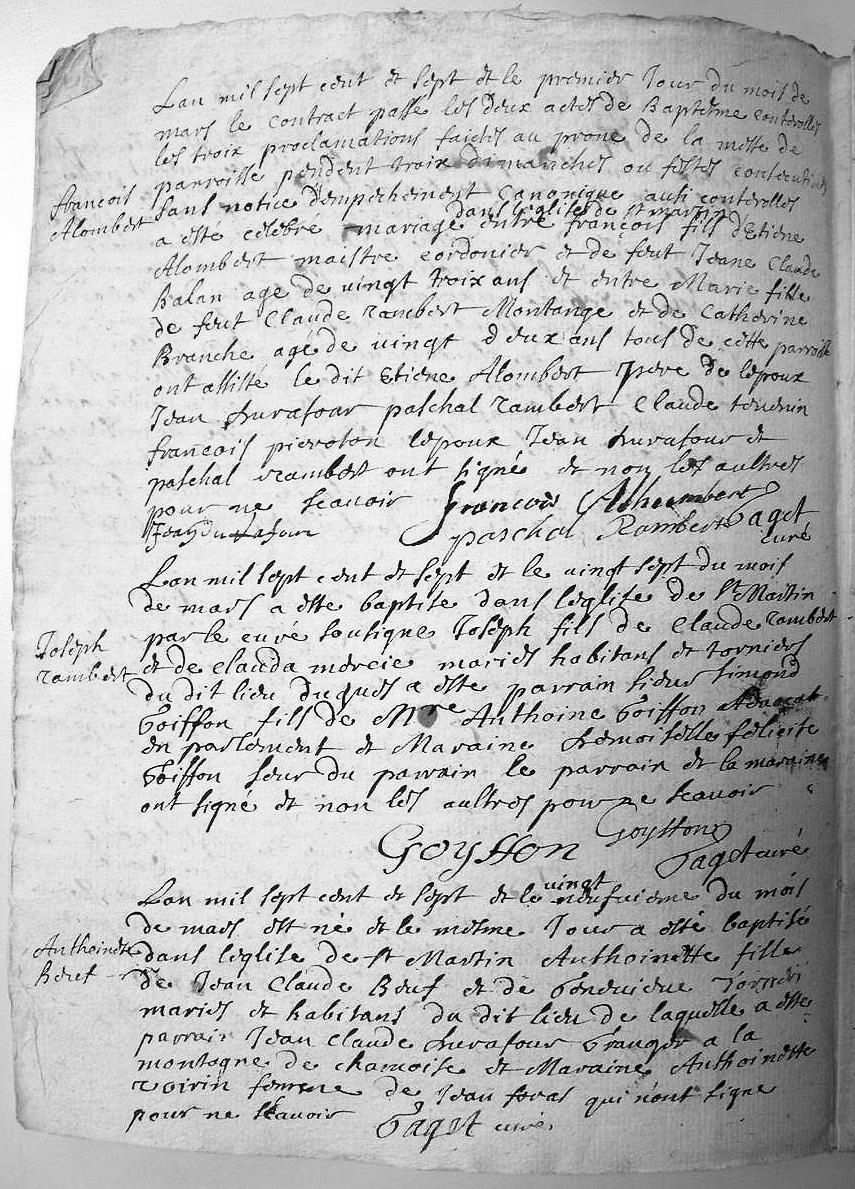 Lan mil sept cent et sept et le premier Jour du mois de
mars le contract passé les deux actes de Baptesme conterolles
les troix proclamations faictes au prone de la messe de
parroisse pendent troix dimanches ou festes consecutives
françois
Alombert
sans notice dempechement Canonique aussi conterolles
dans leglise de st martin
a esté celebré mariage entre françois fils d'Etiene
Alombert maistre cordonier et de feut Jeane Claude
Balan agé de vingt troix ans et entre Marie fille
de feut Claude rambert Montange et de Catherine
Branche agé de vingt deux ans tous de cette parroisse
ont assisté le dit Etiene Alombert Pere de lepoux
Jean Durafour paschal rambert Claude
françois pieroton lepoux Jean Durafour et
paschal rambert ont signé et non les aultres
pour ne scavoir françois Alhumbert
Jean Durafour paschal Rambert Paget
curé
Lan mil sept cent et sept et le vingt sept du mois
de mars a esté baptisé dans leglise de st Martin
Joseph
rambert
par le curé soutigne Joseph fils de Claude rambert
et de Clauda mercie maries habitans et torniers
du dit lieu duques a esté parrain sieur simond
Goiffon fils de Mre Anthoine Goiffon Advocat
en parlement et Maraine Demoiselle felicite
Goiffon seur du parrain le parrain et la maraine
ont signé et non les aultres pour ne scavoir
Goyffon Goyffon
Paget curé
vingt
Lan mil sept cent et sept et le neufuieme du mois
de mars est né et le mesme Jour a esté baptisé
Anthoinette
Beuf
dans leglise de st Martin Anthoinette fille
de Jean Claude Beuf et de Geneuieue
maries et habitans du dit lieu de laquelle a esté
parrain Jean Claude Durafour Granger a la
montagne de chamoise et Maraine Anthoinette
voirin femme de Jean foras qui n'ont signe
pour ne scavoir Paget curé